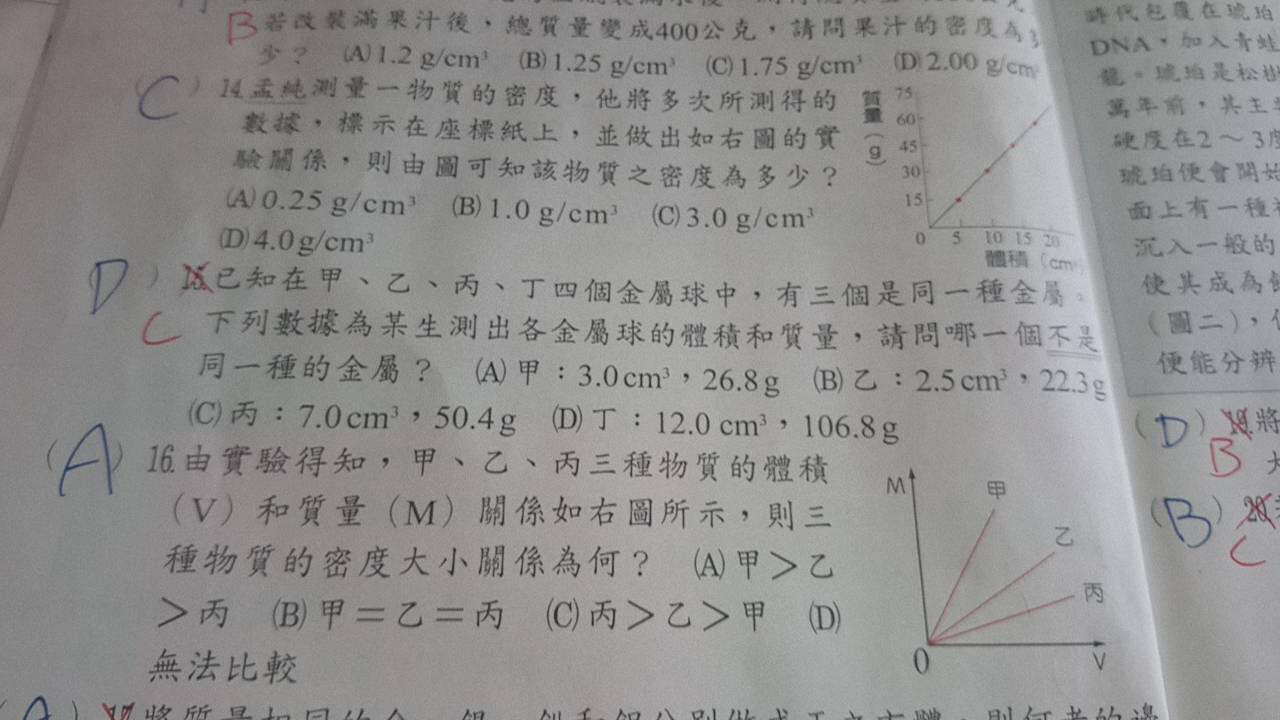 B 若改裝滿果汁後，總質量變成400公克，請問果汁的密度為多
少？ (A)1.2 g/cm³ (B)1.25 g/cm³ (C)1.75 g/cm³ (D)2.00 g/cm³
C ）14.孟純測量一物質的密度，他將多次所測得的
數據，標示在座標紙上，並做出如右圖的實
驗關係，則由圖可知該物質之密度為多少？
(A)0.25 g/cm³ (B)1.0 g/cm³ (C)3.0 g/cm³
(D)4.0g/cm³
質量（g）
75
60
45
30
15
0 5 10 15 20
體積（cm³
D ）15.已知在甲、乙、丙、丁四個金屬球中，有三個是同一種金屬。
C 下列數據為某生測出各金屬球的體積和質量，請問哪一個不是
同一種的金屬？ (A)甲：3.0cm³，26.8g (B)乙：2.5cm³，22.3g
(C)丙：7.0cm³，50.4g (D)丁：12.0 cm³，106.8g
（A）16.由實驗得知，甲、乙、丙三種物質的體積
（V）和質量（M）關係如右圖所示，則三
種物質的密度大小關係為何？ (A)甲＞乙
＞丙 (B)甲＝乙＝丙 (C)丙＞乙＞甲 (D)
無法比較
M
甲
乙
丙
0
V
時代包覆在琥珀
DNA，加入青蛙
龍。琥珀是松樹
萬年前，其主
硬度在2～3度
琥珀便會開始
面上有一種
沉入一般的
使其成為
（圖二），
便能分辨
（D）19.將
B
（B）20.
C